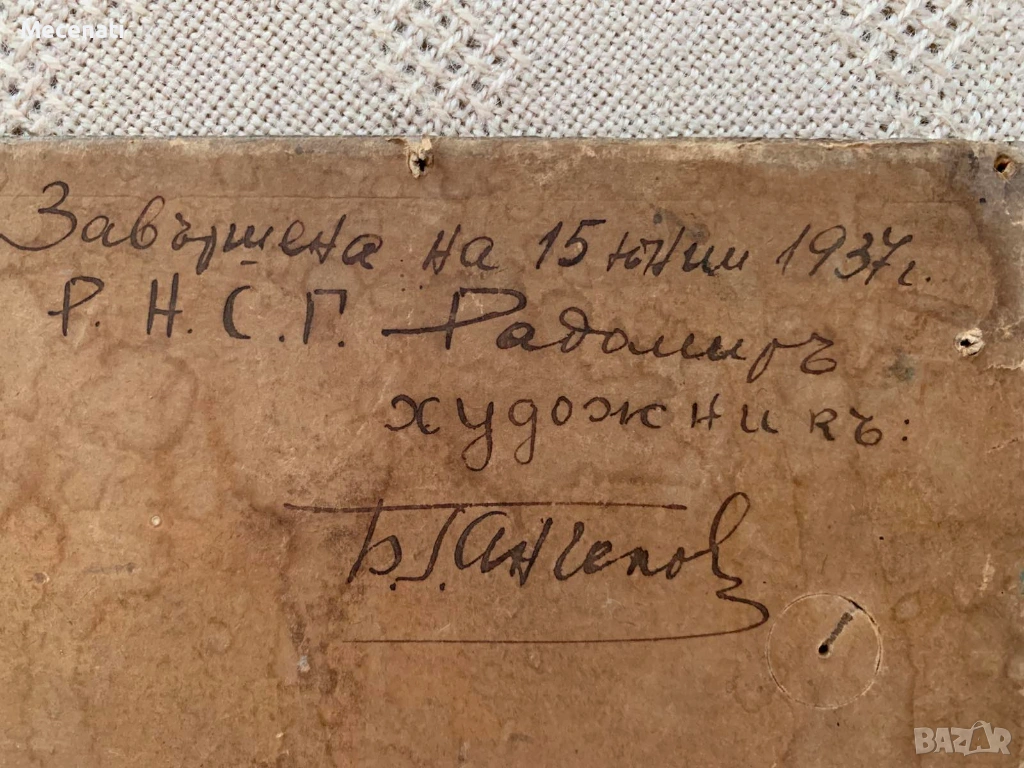 Mecenati
Завършена на 15 юний 1937 г.
Р. Н. С. Г. Радомиръ
художникъ:
Б. Г. Ангелов
BAZAR